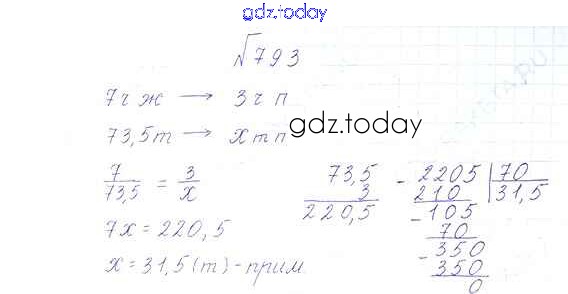 gdz.today
√793
7 ч ж → 3 ч п
73,5 т → х т п
gdz.today
7/73,5 = 3/х
7х = 220,5
х = 31,5 (т) - прим.
73,5
3
220,5
- 2205 | 70
210 | 31,5
- 105
70
- 350
350
0